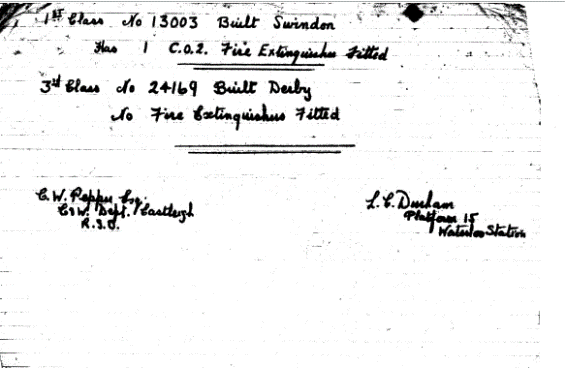 1ST Class No 13003 Built Swindon
Has 1 C.O.2. Fire Extinguisher Fitted
3rd Class No 24169 Built Derby
No Fire Extinguishers Fitted
C.W. Pepper Esq.
C&W. Dept. Eastleigh
R.S.O.
L.C. Durham
Platform 15
Waterloo Station